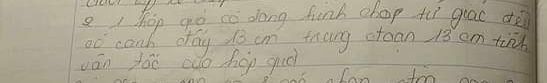 2 1 hộp quà có dạng hình chóp tứ giác đều
có cạnh đáy 13 cm trung đoạn 13 cm tính
hộp quà